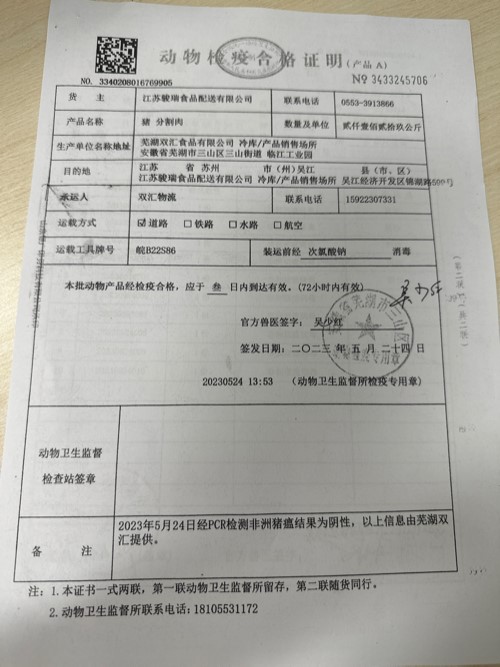 动物检疫合格证明（产品 A）
NO. 3340208016769905
№ 3433245706
货 主 江苏骏瑞食品配送有限公司 联系电话 0553-3913866
产品名称 猪 分割肉 数量及单位 贰仟壹佰贰拾玖公斤
生产单位名称地址 芜湖双汇食品有限公司 冷库/产品销售场所
安徽省芜湖市三山区三山街道 临江工业园
目的地 江苏 省 苏州 市（州）吴江 县（市、区）
江苏骏瑞食品配送有限公司 冷库/产品销售场所 吴江经济开发区锦湖路599号
承运人 双汇物流 联系电话 15922307331
运载方式 ☑道路 □铁路 □水路 □航空
运载工具牌号 皖B22S86 装运前经 次氯酸钠 消毒
本批动物产品经检疫合格，应于 叁 日内到达有效。(72小时内有效)
官方兽医签字： 吴少红
签发日期：二〇二三 年 五 月 二十四 日
20230524 13:53 （动物卫生监督所检疫专用章）
动物卫生监督
检查站签章
备 注 2023年5月24日经PCR检测非洲猪瘟结果为阴性，以上信息由芜湖双
汇提供。
注：1.本证书一式两联，第一联动物卫生监督所留存，第二联随货同行。
2.动物卫生监督所联系电话：18105531172